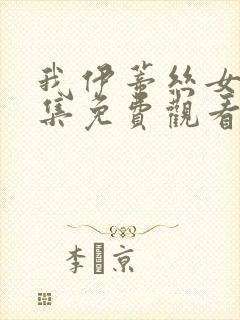 我伊蒂丝女
集免費觀看
李 京